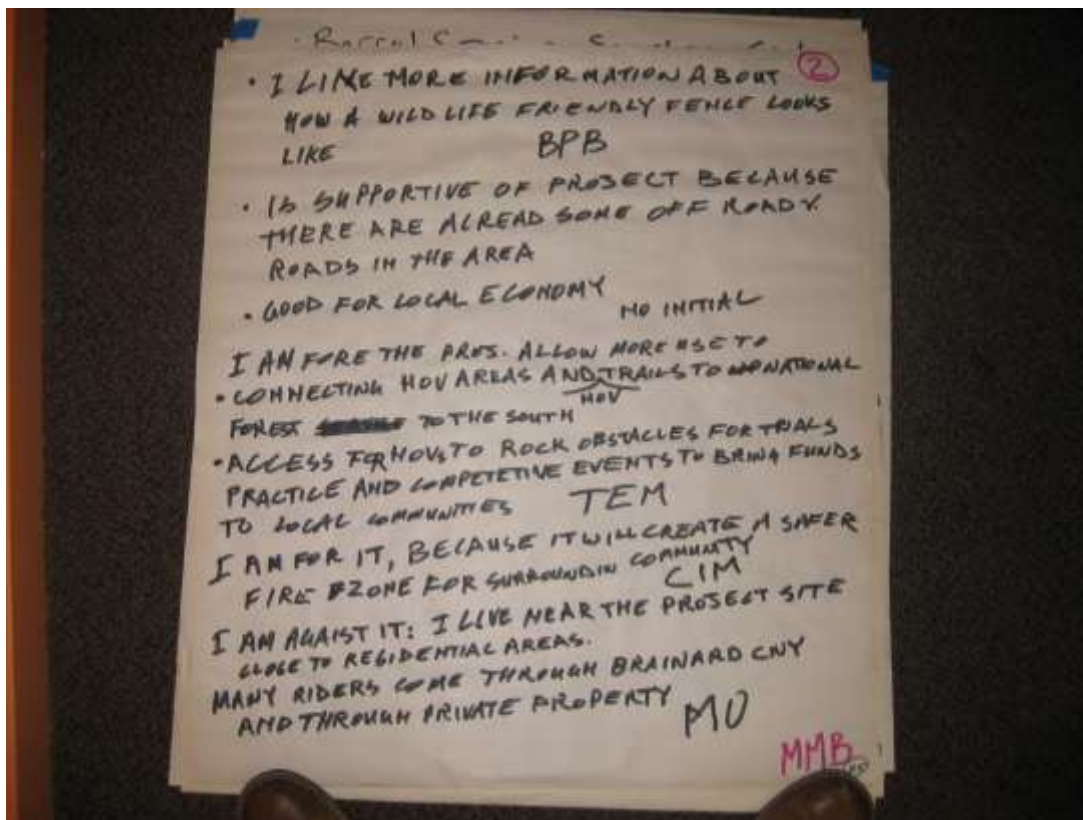 ②
• I LIKE MORE INFORMATION ABOUT
HOW A WILD LIFE FRIENDLY FENCE LOOKS
LIKE BPB
• IS SUPPORTIVE OF PROJECT BECAUSE
THERE ARE ALREAD SOME OFF ROADV.
ROADS IN THE AREA
• GOOD FOR LOCAL ECONOMY
NO INITIAL
I AM FORE THE PROS. ALLOW MORE USE TO
• CONNECTING HOV AREAS AND TRAILS TO NATIONAL
HOV
FOREST TO THE SOUTH
• ACCESS FOR HOVS TO ROCK OBSTACLES FOR TRIALS
PRACTICE AND COMPETETIVE EVENTS TO BRING FUNDS
TO LOCAL COMMUNITIES TEM
I AM FOR IT, BECAUSE IT WILL CREATE A SAFER
FIRE ZONE FOR SURROUNDIN COMMUNITY
CIM
I AM AGAIST IT: I LIVE NEAR THE PROJECT SITE
CLOSE TO RESIDENTIAL AREAS.
MANY RIDERS COME THROUGH BRAINARD CNY
AND THROUGH PRIVATE PROPERTY MU
MMB